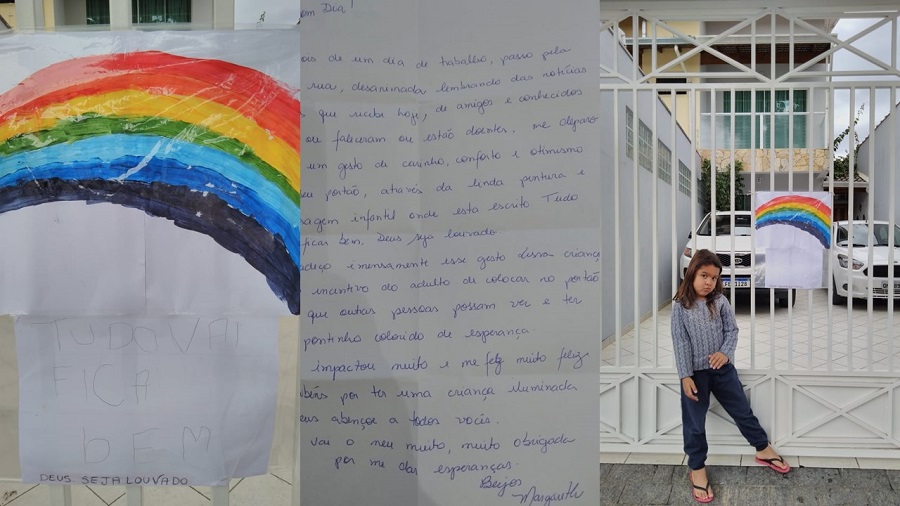 TUDO VAI
FICA
BEM
DEUS SEJA LOUVADO
om Dia!
ois de um dia de trabalho, passo pela
rua, desanimada lembrando das notícias
que recebi hoje, de amigos e conhecidos
ou faleceram ou estão doentes, me deparo
um gesto de carinho, conforto e otimismo
eu portão, através da linda pintura e
sagem infantil onde esta escrito Tudo
ficar bem. Deus seja louvado.
adeço imensamente esse gesto dessa criança
incentivo do adulto de colocar no portão
que outras pessoas possam ver e ter
pontinho colorido de esperança.
impactou muito e me fez muito feliz
béns por ter uma criança iluminada
eus abençoe a todos vocês.
vai o meu muito, muito obrigada
por me dar esperanças.
Beijos
Margareth